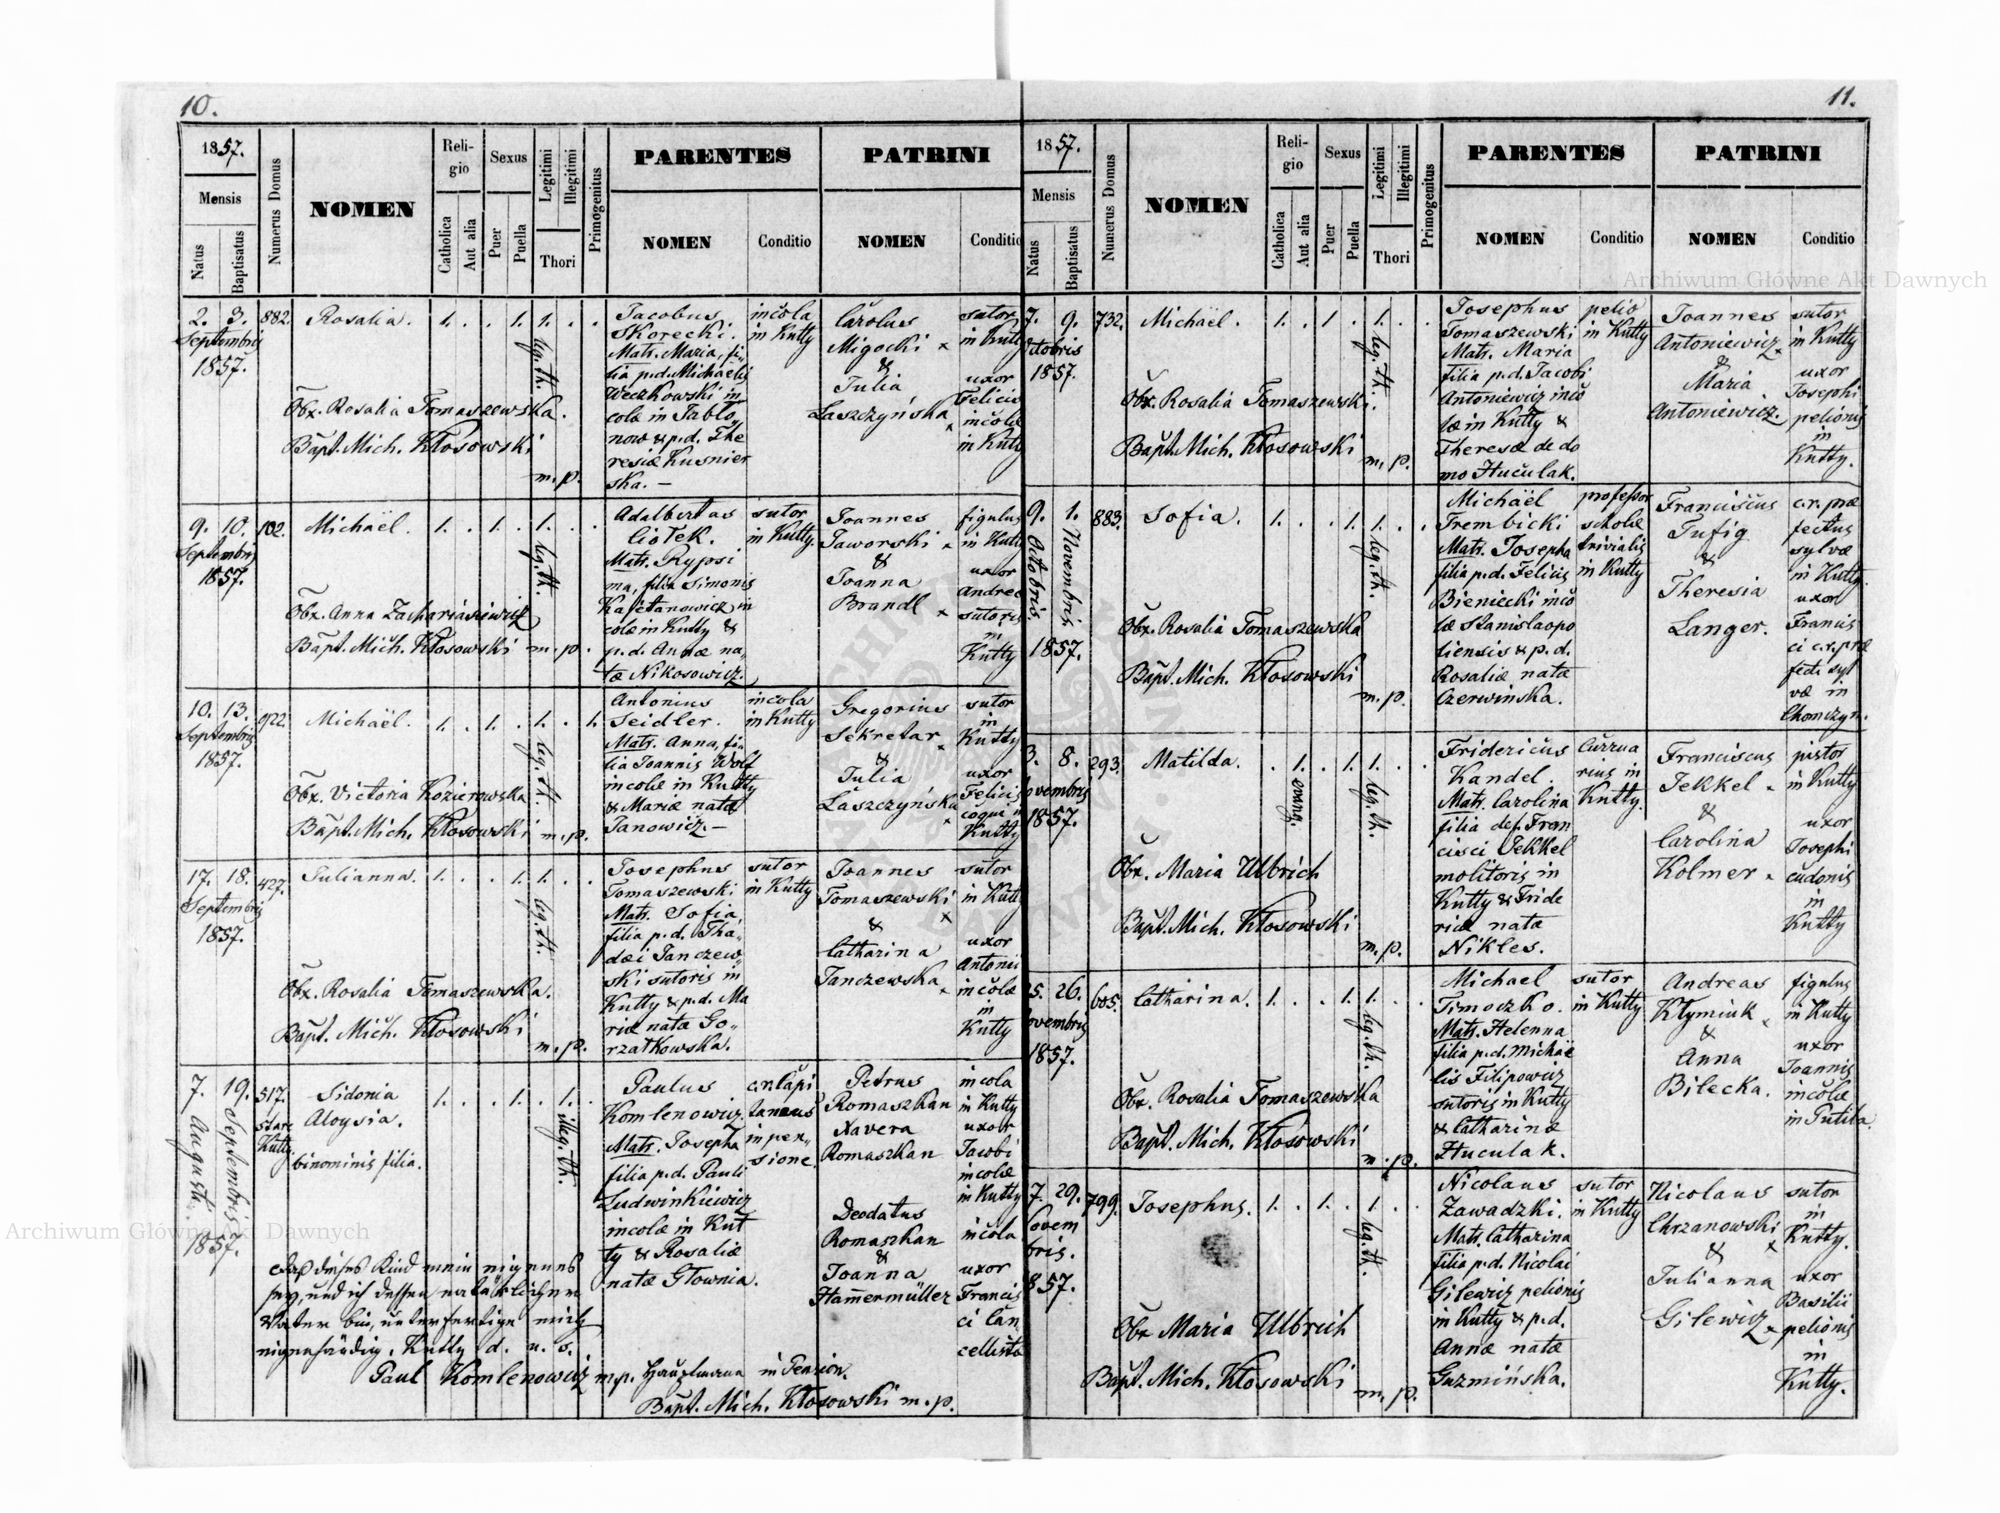 10.
1857.
Mensis
Natus
Baptisatus
Numerus Domus
NOMEN
Religio
Catholica
Aut alia
Sexus
Puer
Puella
Legitimi
Illegitimi
Thori
Primogenitus
PARENTES
NOMEN
Conditio
PATRINI
NOMEN
Conditio
2. 3.
Septembris
1857.
882.
Rosalia.
1. . . 1. 1. . .
leg. th.
Obx. Rosalia Tomaszewska.
Bapt. Mich. Kłosowski
m. p.
Jacobus
Skorecki.
Matr. Maria, fi-
lia p.d. Michaelis
Weczkowski in
colæ in Jabło
now & p.d. The
resiæ Kusnier
ska. —
incola
in Kutty
Carolus
Migocki x
&
Julia
Laszczyńska x
sutor
in Kutty
uxor
Felicis
incolæ
in Kutty
9. 10.
Septembris
1857.
102.
Michaël.
1. . 1. . 1. . .
leg. th.
Obx. Anna Zachariasiewicz
Bapt. Mich. Kłosowski m. p.
Adalbertus
Ciołek.
Matr. Rypsi
ma, filia Simonis
Kajetanowicz in
colæ in Kutty &
p.d. Annæ na-
tæ Nikosowicz.
sutor
in Kutty.
Joannes
Jaworski x
&
Joanna
Brandl x
figulus
in Kutty
uxor
Andreæ
sutoris
in
Kutty
10. 13.
Septembris
1857.
922.
Michaël.
1. . 1. . 1. . 1.
leg. th.
Obx. Victoria Kozierowska
Bapt. Mich. Kłosowski m. p.
Antonius
Seidler.
Matr. Anna, fi-
lia Joannis Wolf
incolæ in Kutty
& Mariæ natæ
Janowicz. —
incola
in Kutty
Gregorius
Sekretar x
&
Julia
Laszczyńska x
sutor
in
Kutty
uxor
Felicis
coqui in
Kutty
17. 18.
Septembris
1857.
427.
Julianna.
1. . . 1. 1. . .
leg. th.
Obx. Rosalia Tomaszewska.
Bapt. Mich. Kłosowski
m. p.
Josephus
Tomaszewski
Matr. Sofia,
filia p.d. Tha-
dæi Janczew-
ski sutoris in
Kutty & p.d. Ma
riæ nata Go-
rzatkowska.
sutor
in Kutty
Joannes
Tomaszewski
x
&
Catharina
Janczewska x
sutor
in Kutty
uxor
Antonii
incolæ
in
Kutty
7. 19.
Augusti.
Septembris
1857.
517.
stare
Kutty
Sidonia
Aloysia.
binominis filia.
1. . . 1. . 1. .
illeg. th.
Daß dieses Kind mein eigenes
sey, und ich dessen natürlicher
Vater bin, unterfertige mich
eigenhändig. Kutty d. u. s.
Paul Komlenowicz m.p. Hauptmann in Pension.
Bapt. Mich. Kłosowski m. p.
Paulus
Komlenowicz.
Matr. Josepha
filia p.d. Pauli
Ludwinkiewicz
incolæ in Kut
ty & Rosaliæ
natæ Głownia.
c.r. Capi
taneus
in pen-
sione.
Petrus
Romaszkan
Xavera
Romaszkan
Deodatus
Romaszkan
&
Joanna
Hamermüller
incola
in Kutty
uxor
Jacobi
incolæ
in Kutty
incola
uxor
Francis
ci Can
cellistæ
11.
1857.
Mensis
Natus
Baptisatus
Numerus Domus
NOMEN
Religio
Catholica
Aut alia
Sexus
Puer
Puella
Legitimi
Illegitimi
Thori
Primogenitus
PARENTES
NOMEN
Conditio
PATRINI
NOMEN
Conditio
7. 9.
Octobris
1857.
732.
Michaël.
1. . 1 . 1. . .
leg. th.
Obx. Rosalia Tomaszewski.
Bapt. Mich. Kłosowski
m. p.
Josephus
Tomaszewski
Matr. Maria
filia p.d. Jacobi
Antoniewicz inco
læ in Kutty &
Theresæ de do
mo Huculak.
pelio
in Kutty
Joannes
Antoniewicz x
&
Maria
Antoniewicz.
sutor
in Kutty
uxor
Josephi
pelionis
in
Kutty.
9. 1.
Octobris.
Novembris
1857.
883.
Sofia.
1. . . 1. 1. . .
leg. th.
Obx. Rosalia Tomaszewska
Bapt. Mich. Kłosowski
m. p.
Michaël
Trembicki
Matr. Josepha
filia p.d. Felicis
Bieniecki inco
læ Stanislaopo
liensis & p.d.
Rosaliæ nata
Czerwińska.
professor
scholæ
trivialis
in Kutty
Franciscus
Tufig
&
Theresia
Langer.
c.r. præ
fectus
sylvæ
in Kutty.
uxor
Francis
ci c.r. præ
fecti syl
væ in
Chomczyn.
3. 8.
ovembris
1857.
293.
Matilda.
. 1. . 1. 1. . .
evang.
leg. th.
Obx. Maria Ulbrich
Bapt. Mich. Kłosowski
m. p.
Fridericus
Kandel.
Matr. Carolina
filia def. Fran
cisci Jekkel
molitoris in
Kutty & Fride
ricæ nata
Nikles.
Currua
rius in
Kutty.
Franciscus
Jekkel x
&
Carolina
Kolmer x
pistor
in Kutty
uxor
Josephi
cudonis
in
Kutty
25. 26.
ovembris
1857.
605.
Catharina.
1. . . 1. 1. . .
leg. th.
Obx. Rosalia Tomaszewska
Bapt. Mich. Kłosowski
m. p.
Michael
Timoczko.
Matr. Helenna
filia p.d. Michaë
lis Filipowicz
sutoris in Kutty
& Catharinæ
Huculak.
sutor
in Kutty
Andreas
Kłymiuk x
&
Anna
Bilecka.
figulus
in Kutty
uxor
Joannis
incolæ
in Putilla
7. 29.
Novem
bris.
857.
799.
Josephus.
1. . 1. . 1. . .
leg. th.
Obx Maria Ulbrich
Bapt. Mich. Kłosowski
m. p.
Nicolaus
Zawadzki.
Matr. Catharina
filia p.d. Nicolai
Gilewicz pelionis
in Kutty & p.d.
Annæ natæ
Guzmińska.
sutor
in Kutty
Nicolaus
Chrzanowski
& x
Julianna
Gilewicz x
sutor
in
Kutty.
uxor
Basilii
pelionis
in
Kutty.
Archiwum Główne Akt Dawnych
Archiwum Główne Akt Dawnych